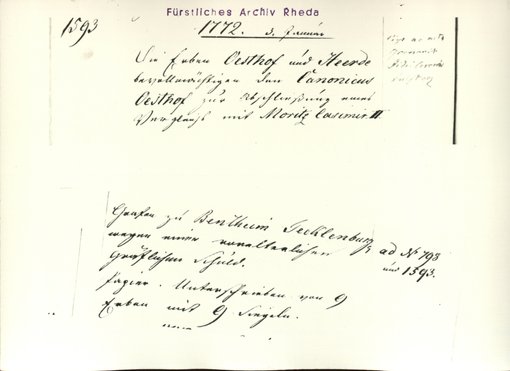 Fürstliches Archiv Rheda
1593
1772. 3. Januar
Die Erben Oesthof und Heerde
bevollmächtigen den Canonicus
Oesthof zur Abschließung eines
Vergleichs mit Moritz Casimir II
Grafen zu Bentheim Tecklenburg
wegen einer vorelterlichen
Gräflichen Schuld.
ad № 798
und 1593.
Papier. Unterschrieben von 9
Erben mit 9 Siegeln.